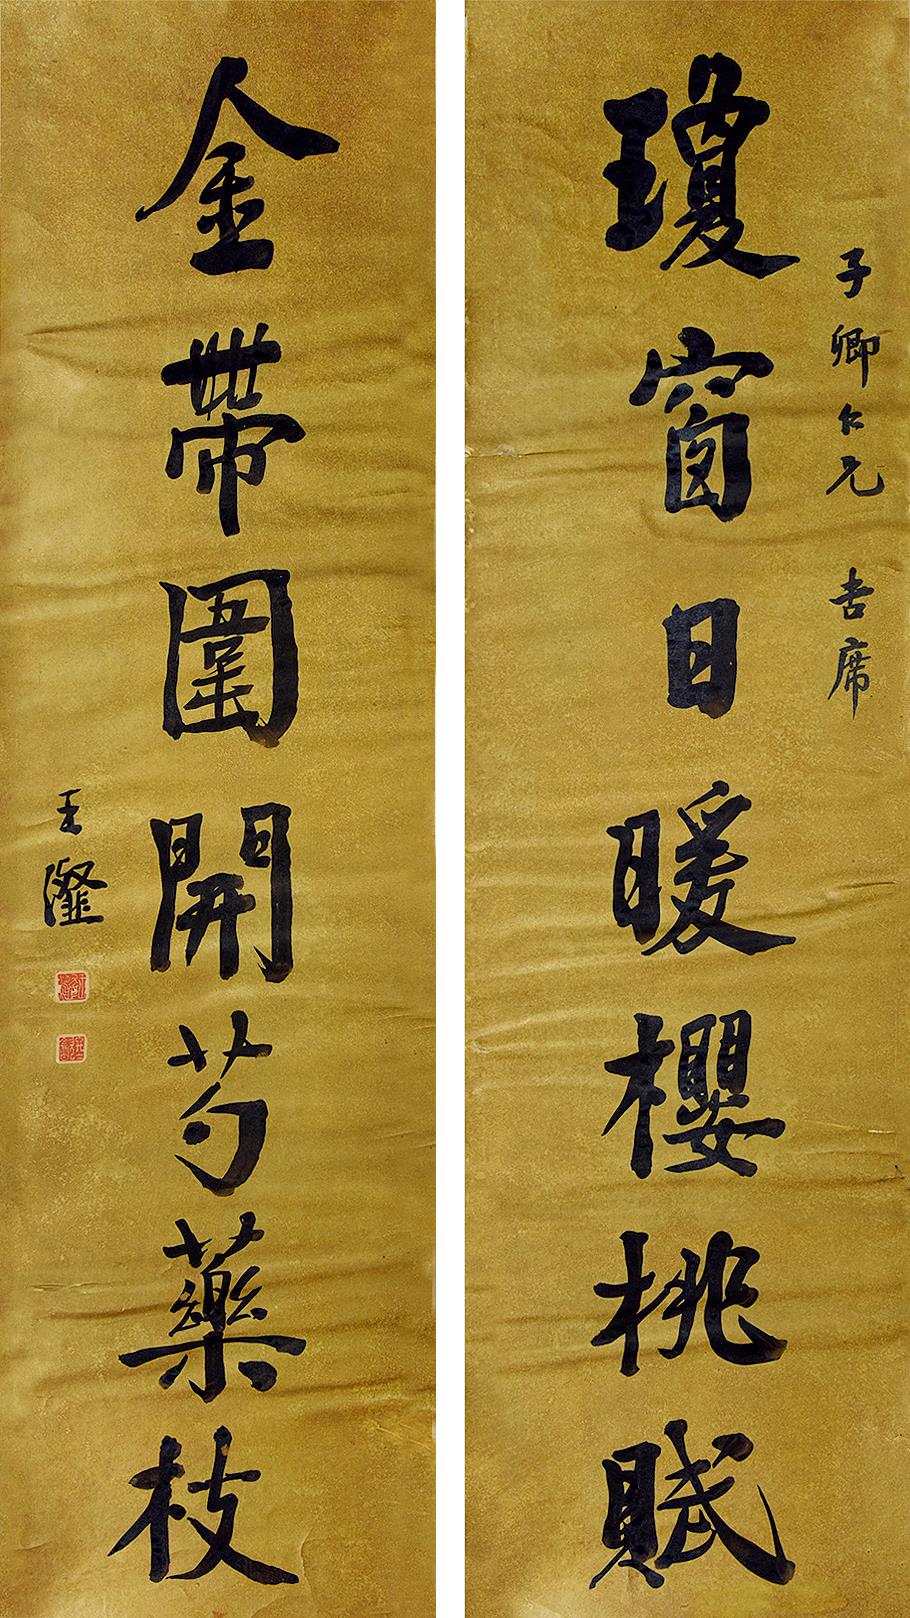 子卿仁兄 吉席
瓊窗日暖櫻桃賦
金帶圍開芍藥枝
王瀣